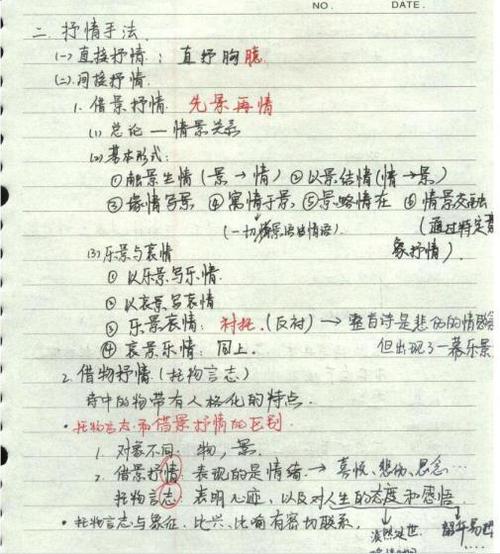 NO. DATE.
二、抒情手法
(一)直接抒情：直抒胸臆
(二)间接抒情
1. 借景抒情 先景再情
(1) 总论 — 情景关系
(2) 基本形式：
①触景生情(景→情) ②以景结情(情→景)
③缘情写景 ④寓情于景 ⑤景略情在 ⑥情景交融
(一切景语皆情语) (通过特定意
象抒情)
(3)乐景与哀情
① 以乐景写乐情
② 以哀景写哀情
③ 乐景哀情：衬托(反衬) → 整首诗是悲伤的情
但出现了一幕乐景
④ 哀景乐情：同上.
2. 借物抒情(托物言志)
诗中的物带有人格化的特点.
·托物言志和借景抒情的区别
1. 对象不同：物，景.
2. 借景抒情：表现的是情绪 → 喜悦、悲伤、思念…
托物言志：表明心迹，以及对人生的态度和感悟.
·托物言志与象征、比兴、比喻有密切联系.